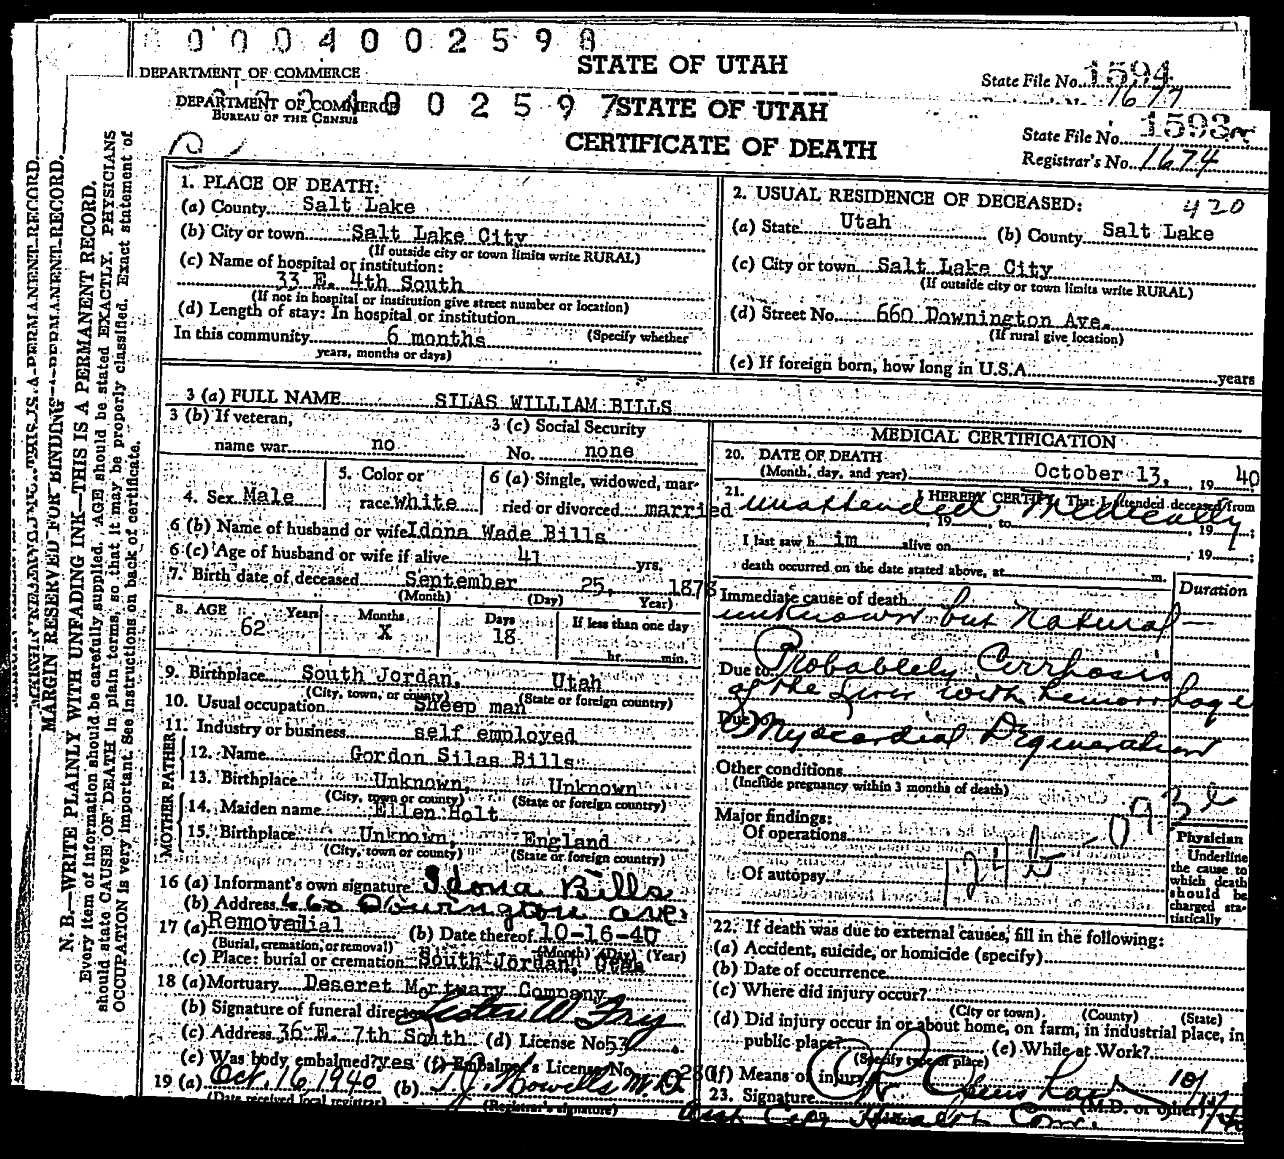 0 0 0 4 0 0 2 5 9 8
STATE OF UTAH
DEPARTMENT OF COMMERCE
State File No. 1594
1677
DEPARTMENT OF COMMERCE
BUREAU OF THE CENSUS
4 0 0 2 5 9 7
STATE OF UTAH
CERTIFICATE OF DEATH
State File No. 1593
Registrar's No. 1674
MARGIN RESERVED FOR BINDING
N. B.—WRITE PLAINLY WITH UNFADING INK—THIS IS A PERMANENT RECORD.
Every item of information should be carefully supplied. AGE should be stated EXACTLY. PHYSICIANS
should state CAUSE OF DEATH in plain terms, so that it may be properly classified. Exact statement of
OCCUPATION is very important. See instructions on back of certificate.
1. PLACE OF DEATH:
(a) County Salt Lake
(b) City or town Salt Lake City
(If outside city or town limits write RURAL)
(c) Name of hospital or institution:
33 E. 4th South
(If not in hospital or institution give street number or location)
(d) Length of stay: In hospital or institution
In this community 6 months (Specify whether
years, months or days)
2. USUAL RESIDENCE OF DECEASED:
420
(a) State Utah (b) County Salt Lake
(c) City or town Salt Lake City
(If outside city or town limits write RURAL)
(d) Street No. 660 Downington Ave.
(If rural give location)
(e) If foreign born, how long in U.S.A. years
3 (a) FULL NAME SILAS WILLIAM BILLS
3 (b) If veteran,
name war no
3 (c) Social Security
No. none
4. Sex Male
5. Color or
race White
6 (a) Single, widowed, mar-
ried or divorced married
6 (b) Name of husband or wife Idona Wade Bills
6 (c) Age of husband or wife if alive 41 yrs.
7. Birth date of deceased September 25, 1878
(Month) (Day) Year)
8. AGE Years Months Days If less than one day
62 X 18 hr. min.
9. Birthplace South Jordan, Utah
(City, town, or county) (State or foreign country)
10. Usual occupation Sheep man
11. Industry or business self employed
FATHER
12. Name Gordon Silas Bills
13. Birthplace Unknown, Unknown
(City, town or county) (State or foreign country)
MOTHER
14. Maiden name Ellen Holt
15. Birthplace Unknown, England
(City, town or county) (State or foreign country)
16 (a) Informant's own signature Idona Bills
(b) Address 660 Downington ave.
17 (a) Removalial (b) Date thereof 10-16-40
(Burial, cremation, or removal) (Month) (Day) (Year)
(c) Place: burial or cremation South Jordan, Utah
18 (a) Mortuary Deseret Mortuary Company
(b) Signature of funeral director
(c) Address 36 E. 7th South (d) License No. 53
(e) Was body embalmed? yes (f) Embalmer's License No. 280
19 (a) Oct. 16 1940 (b) T. J. Howells M.D.
(Date received local registrar) (Registrar's signature)
MEDICAL CERTIFICATION
20. DATE OF DEATH
(Month, day, and year) October 13, 19 40
21. I HEREBY CERTIFY, That I attended deceased from
unattended Medically
, 19 , to , 19 ;
I last saw h im alive on , 19 ;
death occurred on the date stated above, at m.
Duration
Immediate cause of death
unknown but Natural
Due to Probablely Cirrhosis
of the Liver with hemorrhage
Due to
Myocardial Degeneration
Other conditions
(Include pregnancy within 3 months of death)
Major findings:
Of operations
Of autopsy
Physician
Underline
the cause to
which death
should be
charged sta-
tistically
22. If death was due to external causes, fill in the following:
(a) Accident, suicide, or homicide (specify)
(b) Date of occurrence
(c) Where did injury occur?
(City or town). (County) (State)
(d) Did injury occur in or about home, on farm, in industrial place, in
public place? (e) While at Work?
(Specify type of place)
(f) Means of injury
23. Signature (M.D. or other)